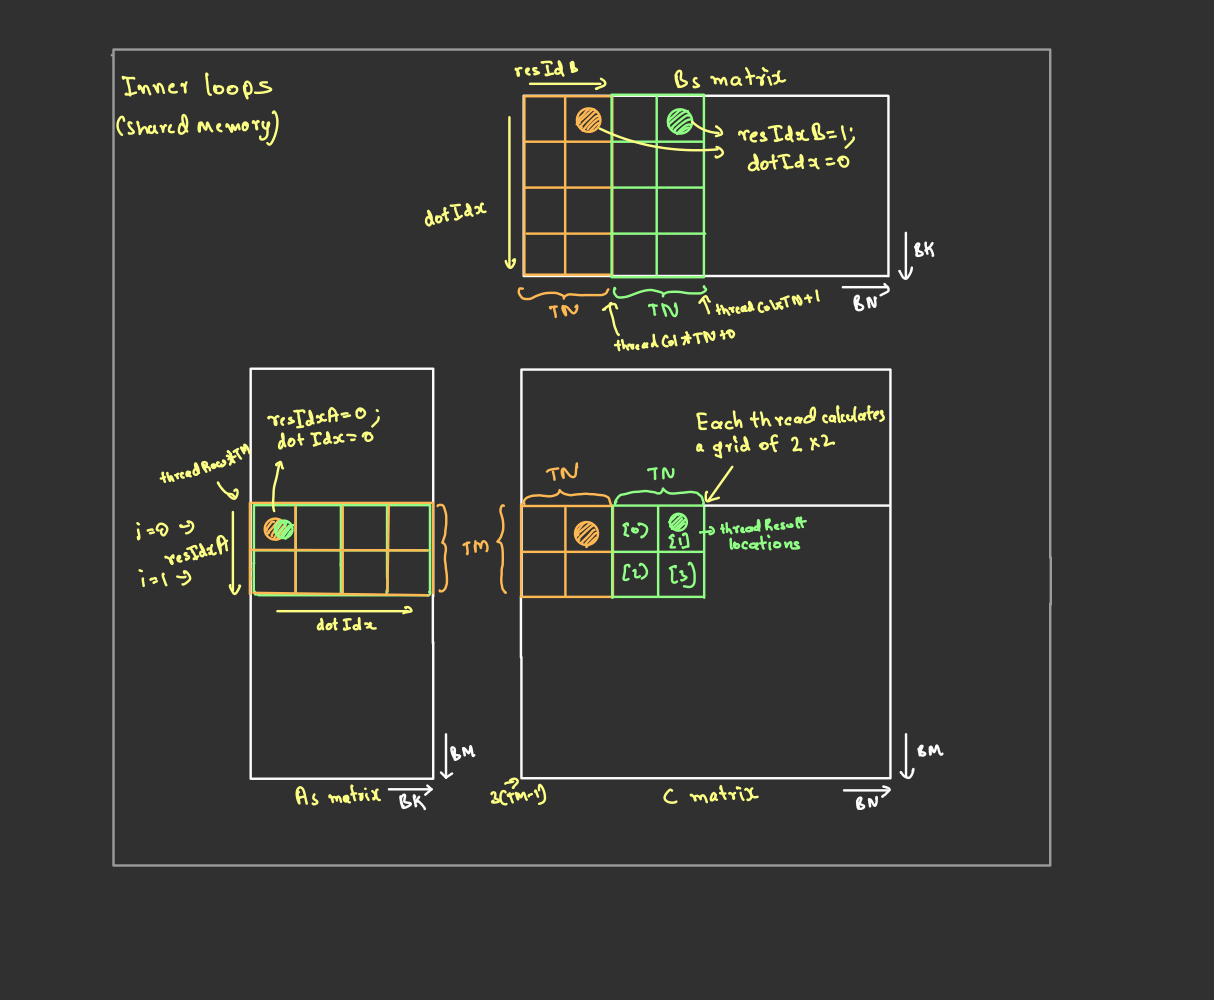 Inner loops
(shared memory)
resIdB
Bs matrix
resIdxB=1;
dotIdx=0
dotIdx
BK
BN
TN
TN
threadCol*TN+1
threadCol*TN+0
resIdxA=0;
dotIdx=0
threadRow*TM
i=0
resIdxA
i=1
dotIdx
TM
BM
As matrix
BK
Each thread calculates
a grid of 2x2
TN
TN
[0]
[1]
[2]
[3]
threadResult
locations
BM
C matrix
BN